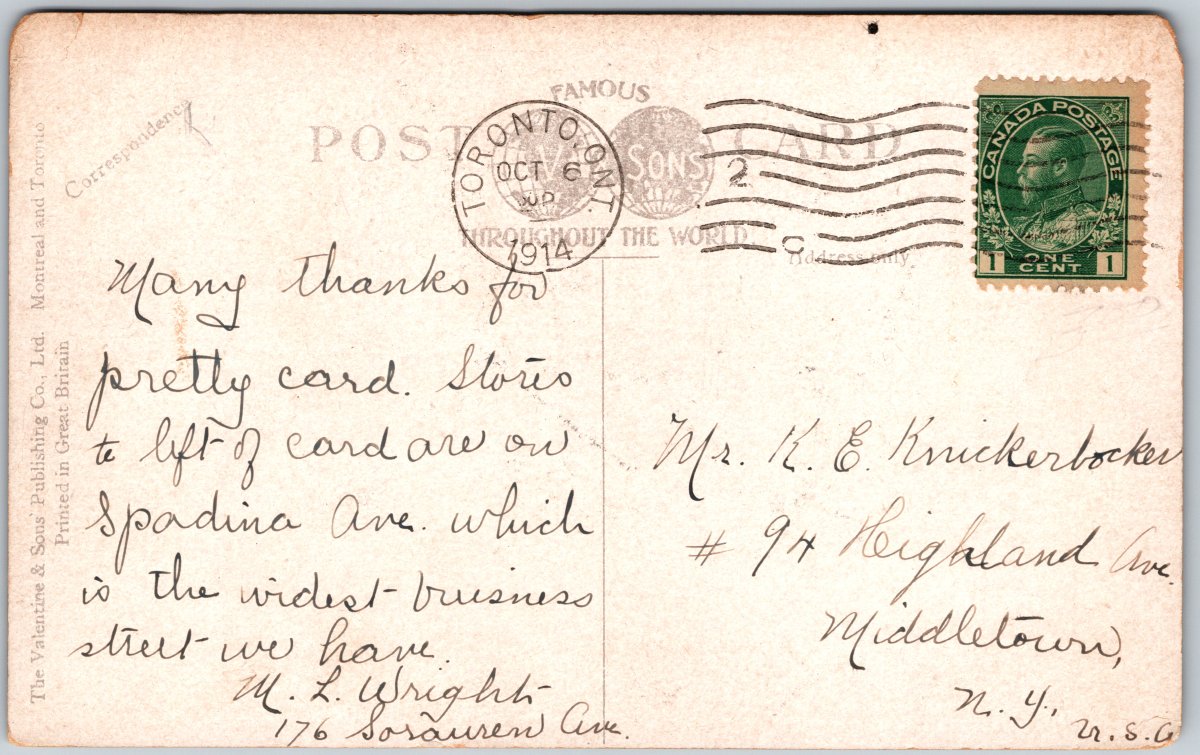 Correspondence
FAMOUS
POST CARD
SONS
THROUGHOUT THE WORLD
Address only
TORONTO, ONT.
OCT 6
1914
2
C
CANADA POSTAGE
1 ONE CENT 1
The Valentine & Sons' Publishing Co., Ltd. Montreal and Toronto
Printed in Great Britain
Many thanks for
pretty card. Stores
to left of card are on
Spadina Ave. which
is the widest buisness
street we have.
M. L. Wright
176 Sorauren Ave.
Mr. K. E. Knickerbocker
# 94 Highland Ave.
Middletown,
N. Y.,
U.S.A